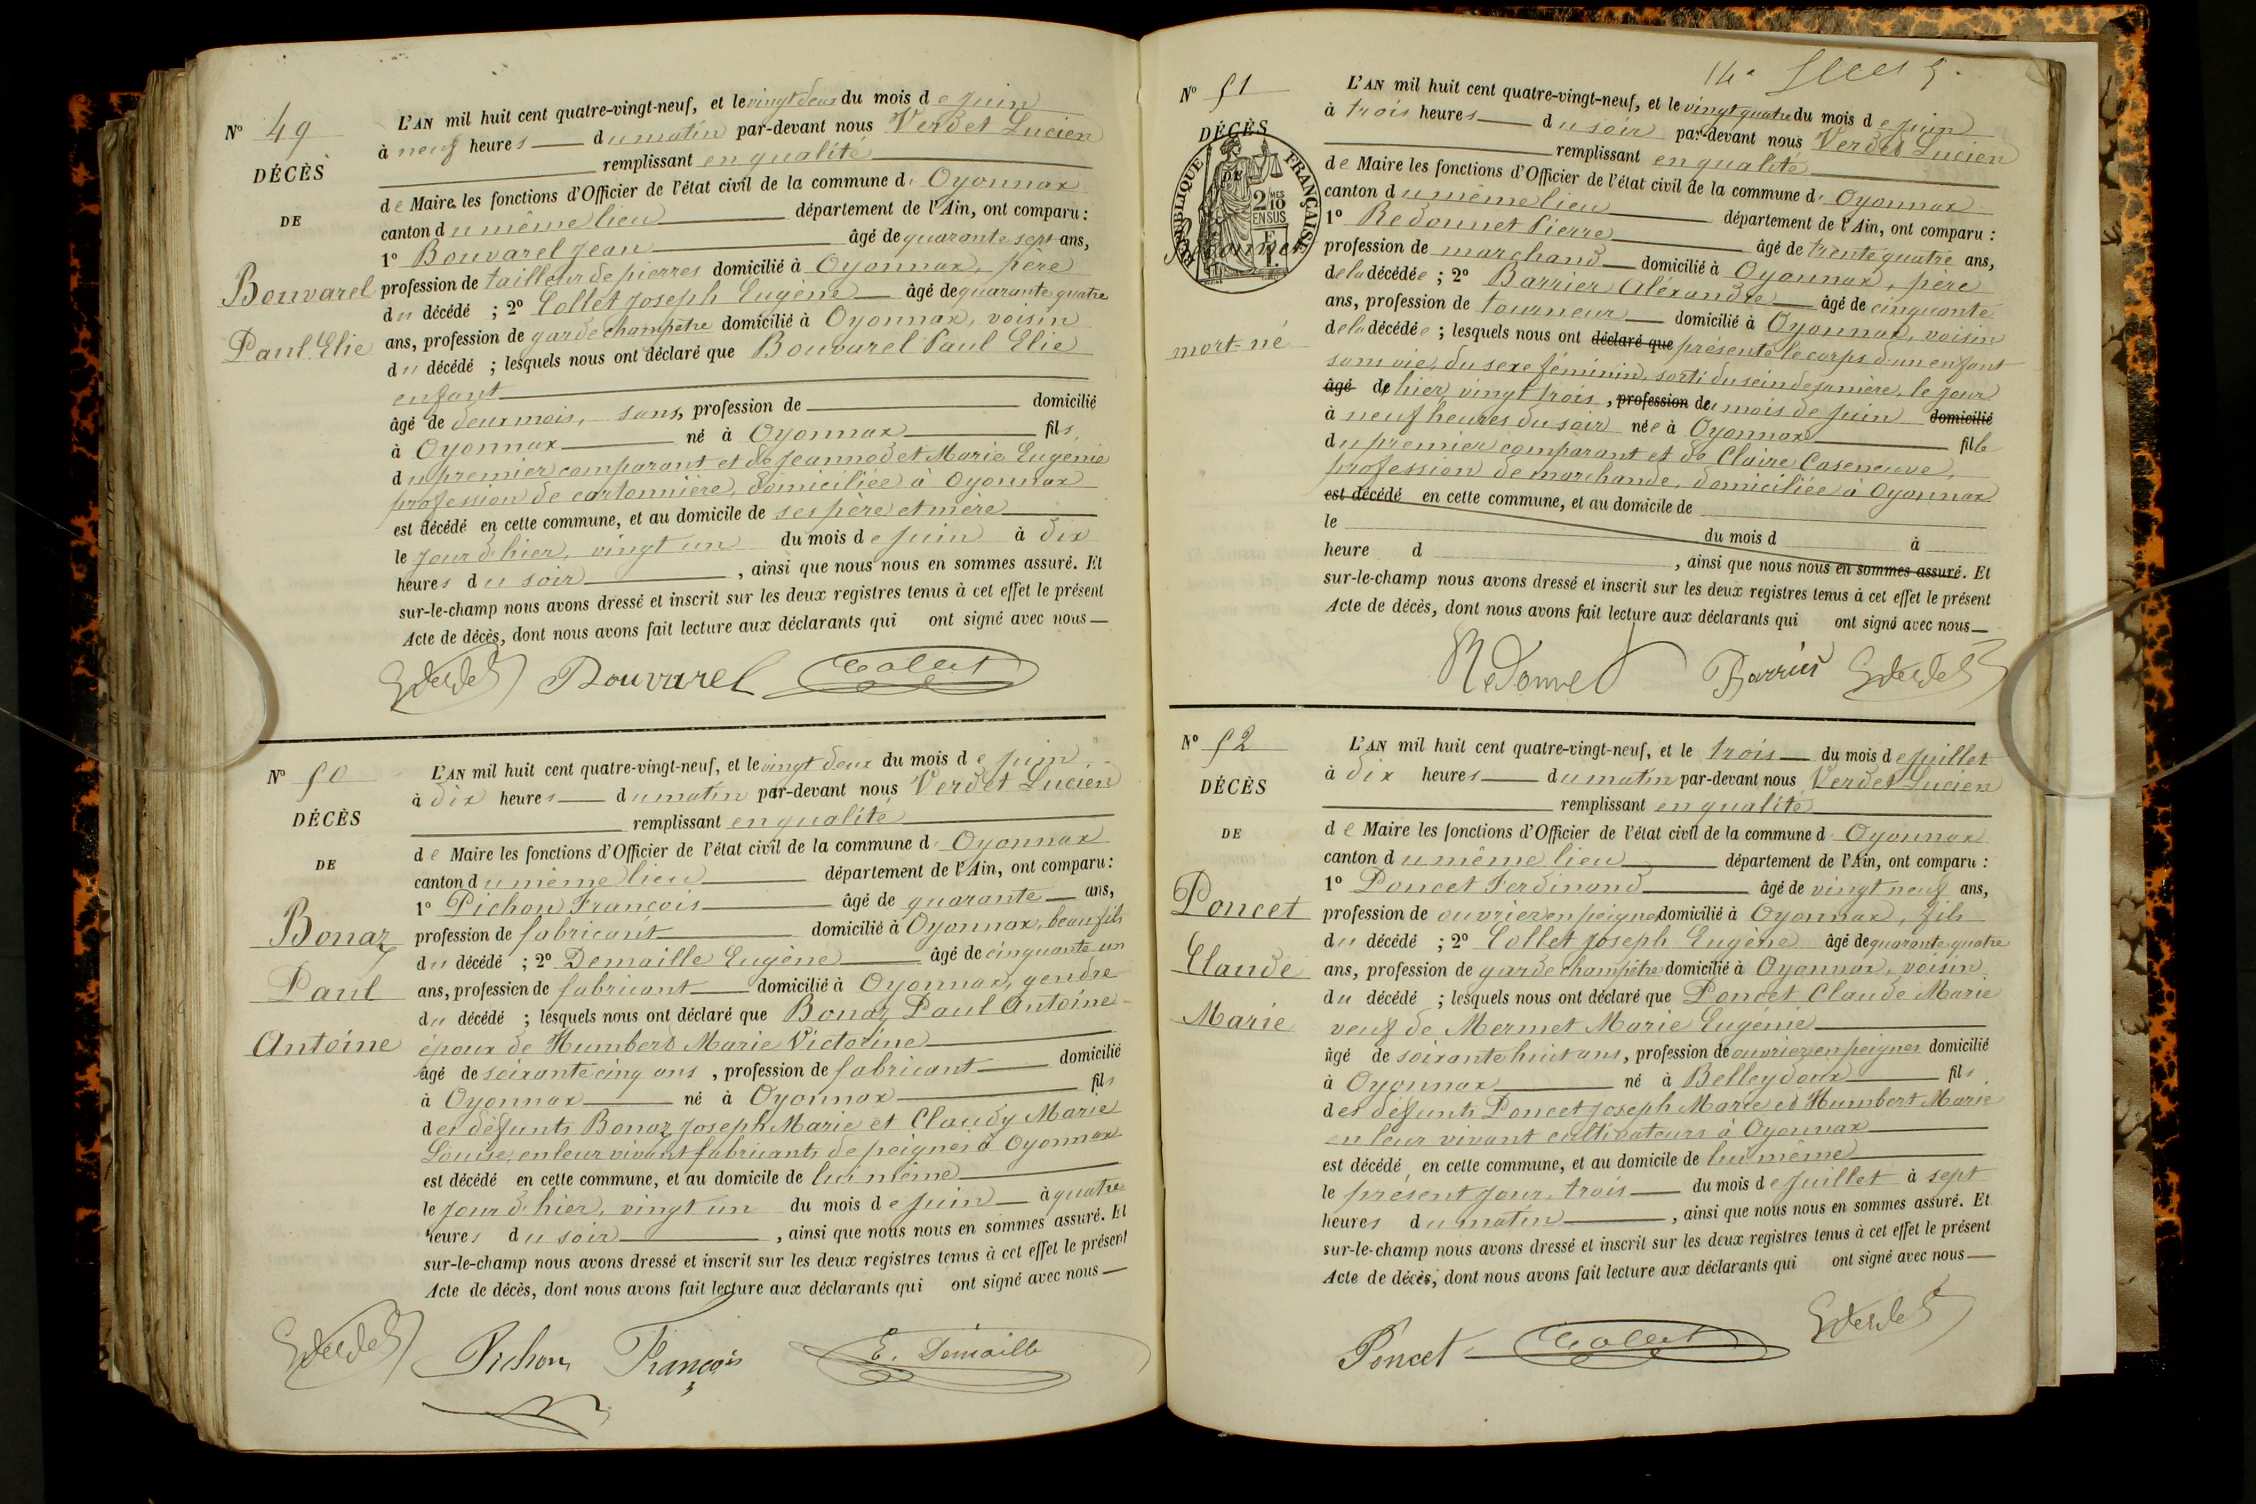 Nº 49
DÉCÈS
DE
Bouvarel
Paul Elie
L'AN mil huit cent quatre-vingt-neuf, et le vingt deux du mois de juin
à neuf heures du matin par-devant nous Verdet Lucien
remplissant en qualité
de Maire les fonctions d'Officier de l'état civil de la commune d' Oyonnax
canton du même lieu département de l'Ain, ont comparu :
1º Bouvarel Jean âgé de quarante sept ans,
profession de tailleur de pierres domicilié à Oyonnax, père
du décédé ; 2º Collet Joseph Eugène âgé de quarante quatre
ans, profession de garde champêtre domicilié à Oyonnax, voisin
du décédé ; lesquels nous ont déclaré que Bouvarel Paul Elie
enfant
âgé de deux mois, sans, profession de domicilié
à Oyonnax né à Oyonnax fils
du premier comparant et de Jeannodet Marie Eugénie
profession de cartonnière, domiciliée à Oyonnax
est décédé en cette commune, et au domicile de ses père et mère
le jour d'hier, vingt un du mois de juin à dix
heures du soir , ainsi que nous nous en sommes assuré. Et
sur-le-champ nous avons dressé et inscrit sur les deux registres tenus à cet effet le présent
Acte de décès, dont nous avons fait lecture aux déclarants qui ont signé avec nous
Bouvarel Collet
Nº 50
DÉCÈS
DE
Bonaz
Paul
Antoine
L'AN mil huit cent quatre-vingt-neuf, et le vingt deux du mois de juin
à dix heures du matin par-devant nous Verdet Lucien
remplissant en qualité
de Maire les fonctions d'Officier de l'état civil de la commune d' Oyonnax
canton du même lieu département de l'Ain, ont comparu :
1º Pichon François âgé de quarante ans,
profession de fabricant domicilié à Oyonnax, beau fils
du décédé ; 2º Demaille Eugène âgé de cinquante un
ans, profession de fabricant domicilié à Oyonnax, gendre
du décédé ; lesquels nous ont déclaré que Bonaz Paul Antoine
époux de Humbert Marie Victorine
âgé de soixante cinq ans , profession de fabricant domicilié
à Oyonnax né à Oyonnax fils
des défunts Bonaz Joseph Marie et Claudy Marie
Louise, en leur vivant fabricants de peignes à Oyonnax
est décédé en cette commune, et au domicile de lui même
le jour d'hier, vingt un du mois de juin à quatre
heures du soir , ainsi que nous nous en sommes assuré. Et
sur-le-champ nous avons dressé et inscrit sur les deux registres tenus à cet effet le présent
Acte de décès, dont nous avons fait lecture aux déclarants qui ont signé avec nous
Pichon François E. Demaille
14e
Nº 51
DÉCÈS
DE
RÉPUBLIQUE FRANÇAISE
2 MES 10
EN SUS
Redonnet
mort-né
L'AN mil huit cent quatre-vingt-neuf, et le vingt quatre du mois de juin
à trois heures du soir par-devant nous Verdet Lucien
remplissant en qualité
de Maire les fonctions d'Officier de l'état civil de la commune d' Oyonnax
canton du même lieu département de l'Ain, ont comparu :
1º Redonnet Pierre âgé de trente quatre ans,
profession de marchand domicilié à Oyonnax, père
de la décédée ; 2º Barrier Alexandre âgé de cinquante
ans, profession de tourneur domicilié à Oyonnax, voisin
de la décédée ; lesquels nous ont déclaré que présenté le corps d'un enfant
sans vie, du sexe féminin, sorti du sein de sa mère, le jour
âgé de hier, vingt trois , profession du mois de juin domicilié
à neuf heures du soir née à Oyonnax fille
du premier comparant et de Claire Caseneuve,
profession de marchande, domiciliée à Oyonnax
est décédé en cette commune, et au domicile de
le du mois d à
heure d , ainsi que nous nous en sommes assuré. Et
sur-le-champ nous avons dressé et inscrit sur les deux registres tenus à cet effet le présent
Acte de décès, dont nous avons fait lecture aux déclarants qui ont signé avec nous
Redonnet Barrier
Nº 52
DÉCÈS
DE
Poncet
Claude
Marie
L'AN mil huit cent quatre-vingt-neuf, et le trois du mois de juillet
à dix heures du matin par-devant nous Verdet Lucien
remplissant en qualité
de Maire les fonctions d'Officier de l'état civil de la commune d' Oyonnax
canton du même lieu département de l'Ain, ont comparu :
1º Poncet Ferdinand âgé de vingt neuf ans,
profession de ouvrier en peignes domicilié à Oyonnax, fils
du décédé ; 2º Collet Joseph Eugène âgé de quarante quatre
ans, profession de garde champêtre domicilié à Oyonnax, voisin
du décédé ; lesquels nous ont déclaré que Poncet Claude Marie
veuf de Mermet Marie Eugénie
âgé de soixante huit ans, profession de ouvrier en peignes domicilié
à Oyonnax né à Belleydoux fils
des défunts Poncet Joseph Marie et Humbert Marie
en leur vivant cultivateurs à Oyonnax
est décédé en cette commune, et au domicile de lui même
le présent jour, trois du mois de juillet à sept
heures du matin , ainsi que nous nous en sommes assuré. Et
sur-le-champ nous avons dressé et inscrit sur les deux registres tenus à cet effet le présent
Acte de décès, dont nous avons fait lecture aux déclarants qui ont signé avec nous
Poncet Collet